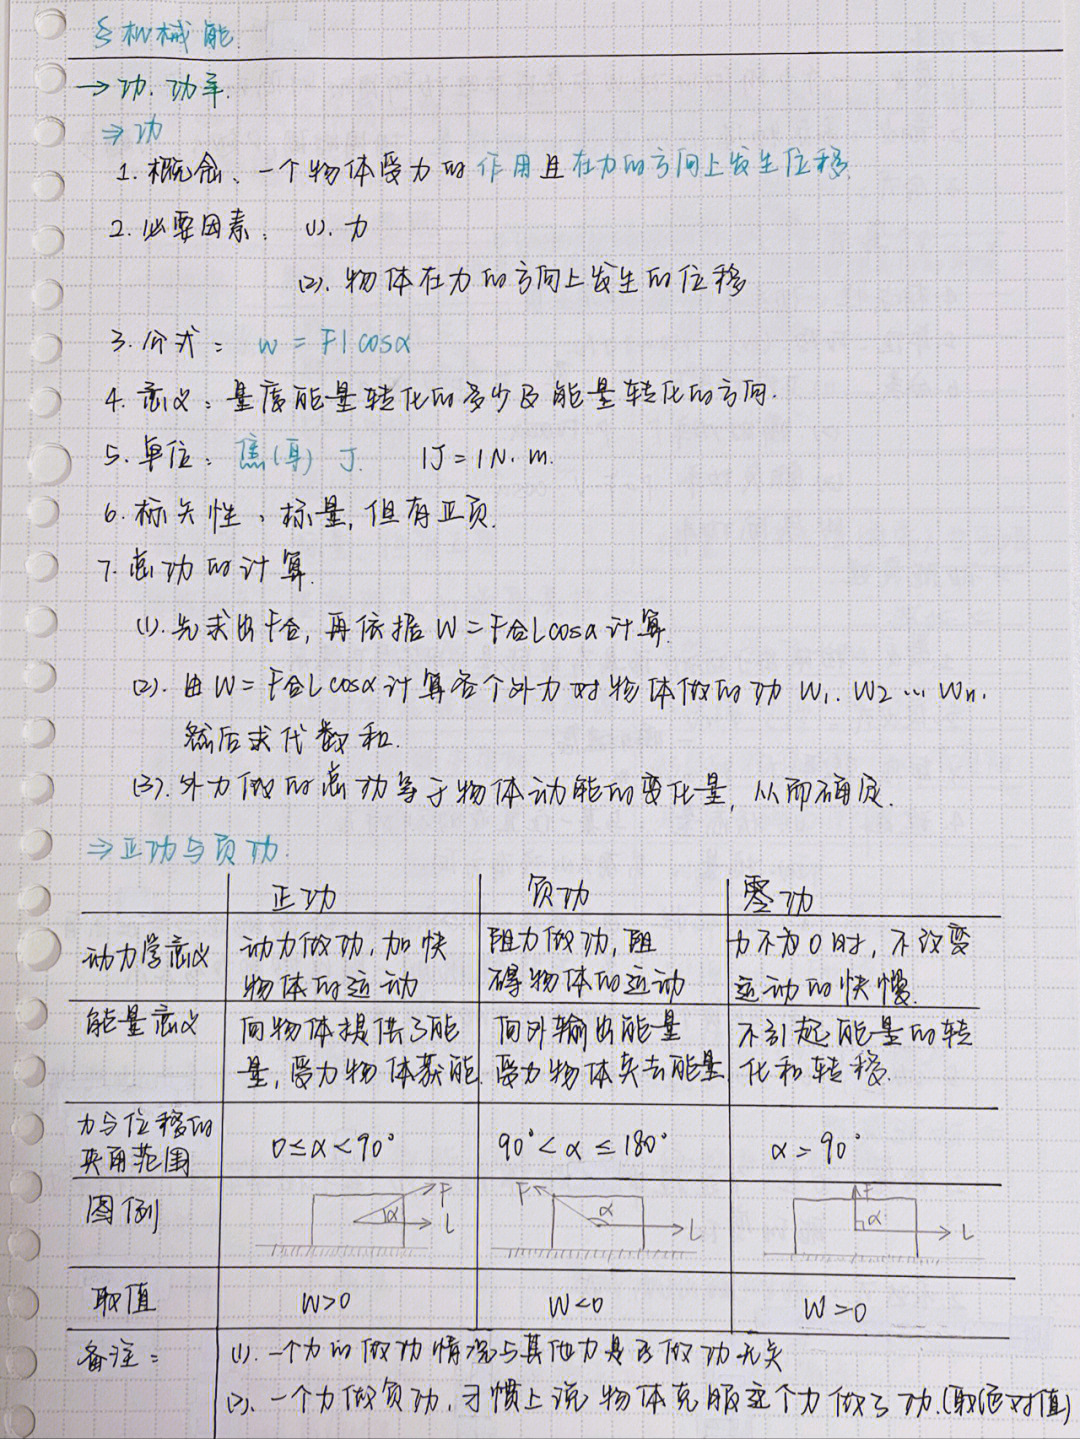 §机械能.
→功.功率.
⇒功
1.概念、一个物体受力的作用且在力的方向上发生位移.
2.必要因素: (1).力
(2).物体在力的方向上发生的位移
3.公式: W = Fl cosα
4.意义: 量度能量转化的多少及能量转化的方向.
5.单位: 焦(耳) J. 1J=1N·m.
6.标矢性: 标量,但有正负.
7.总功的计算.
(1).先求出F合,再依据W=F合Lcosα计算.
(2).由W=F合Lcosα计算各个外力对物体做的功W1.W2…Wn.
然后求代数和.
(3).外力做的总功等于物体动能的变化量,从而确定.
⇒正功与负功
正功 负功 零功
动力学意义 动力做功,加快 阻力做功,阻 力不为0时,不改变
物体的运动 碍物体的运动 运动的快慢.
能量意义 向物体提供了能 向外输出能量 不引起能量的转
量,受力物体获能. 受力物体失去能量 化和转移.
力与位移的
夹角范围 0≤α<90° 90°<α≤180° α=90°
图例 F α L F α L F α L
取值 W>0 W<0 W=0
备注: (1).一个力的做功情况与其他力是否做功无关
(2).一个力做负功,习惯上说物体克服这个力做了功.(取绝对值)